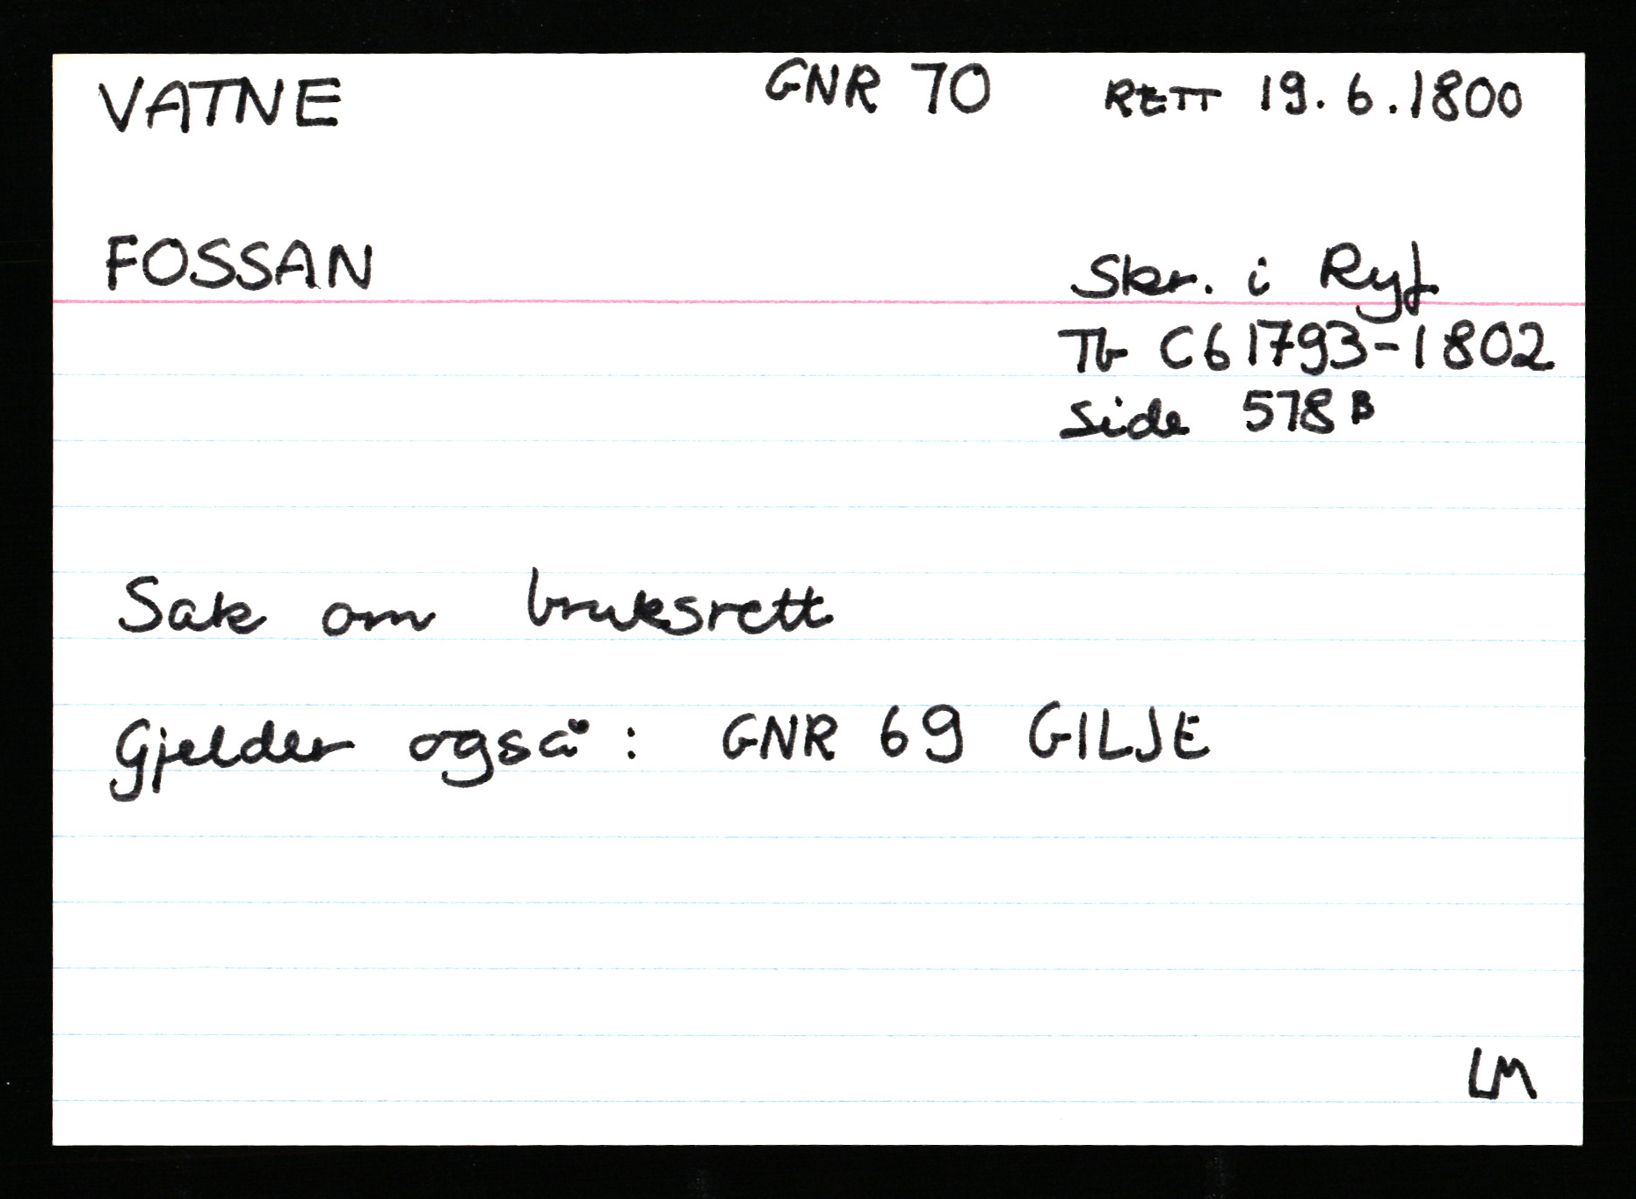 VATNE GNR 70 RETT 19.6.1800
FOSSAN
Skr. i Ryf.
Tb C6 1793-1802
Side 578 B
Sak om bruksrett
Gjelder også: GNR 69 GILJE
LM